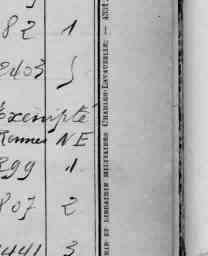 82 1
2403
Exempté
Rennes NE
399 1
807 2
441 3
RIE ET LIBRAIRIE MILITAIRES CHARLES-LAVAUZELLE. —